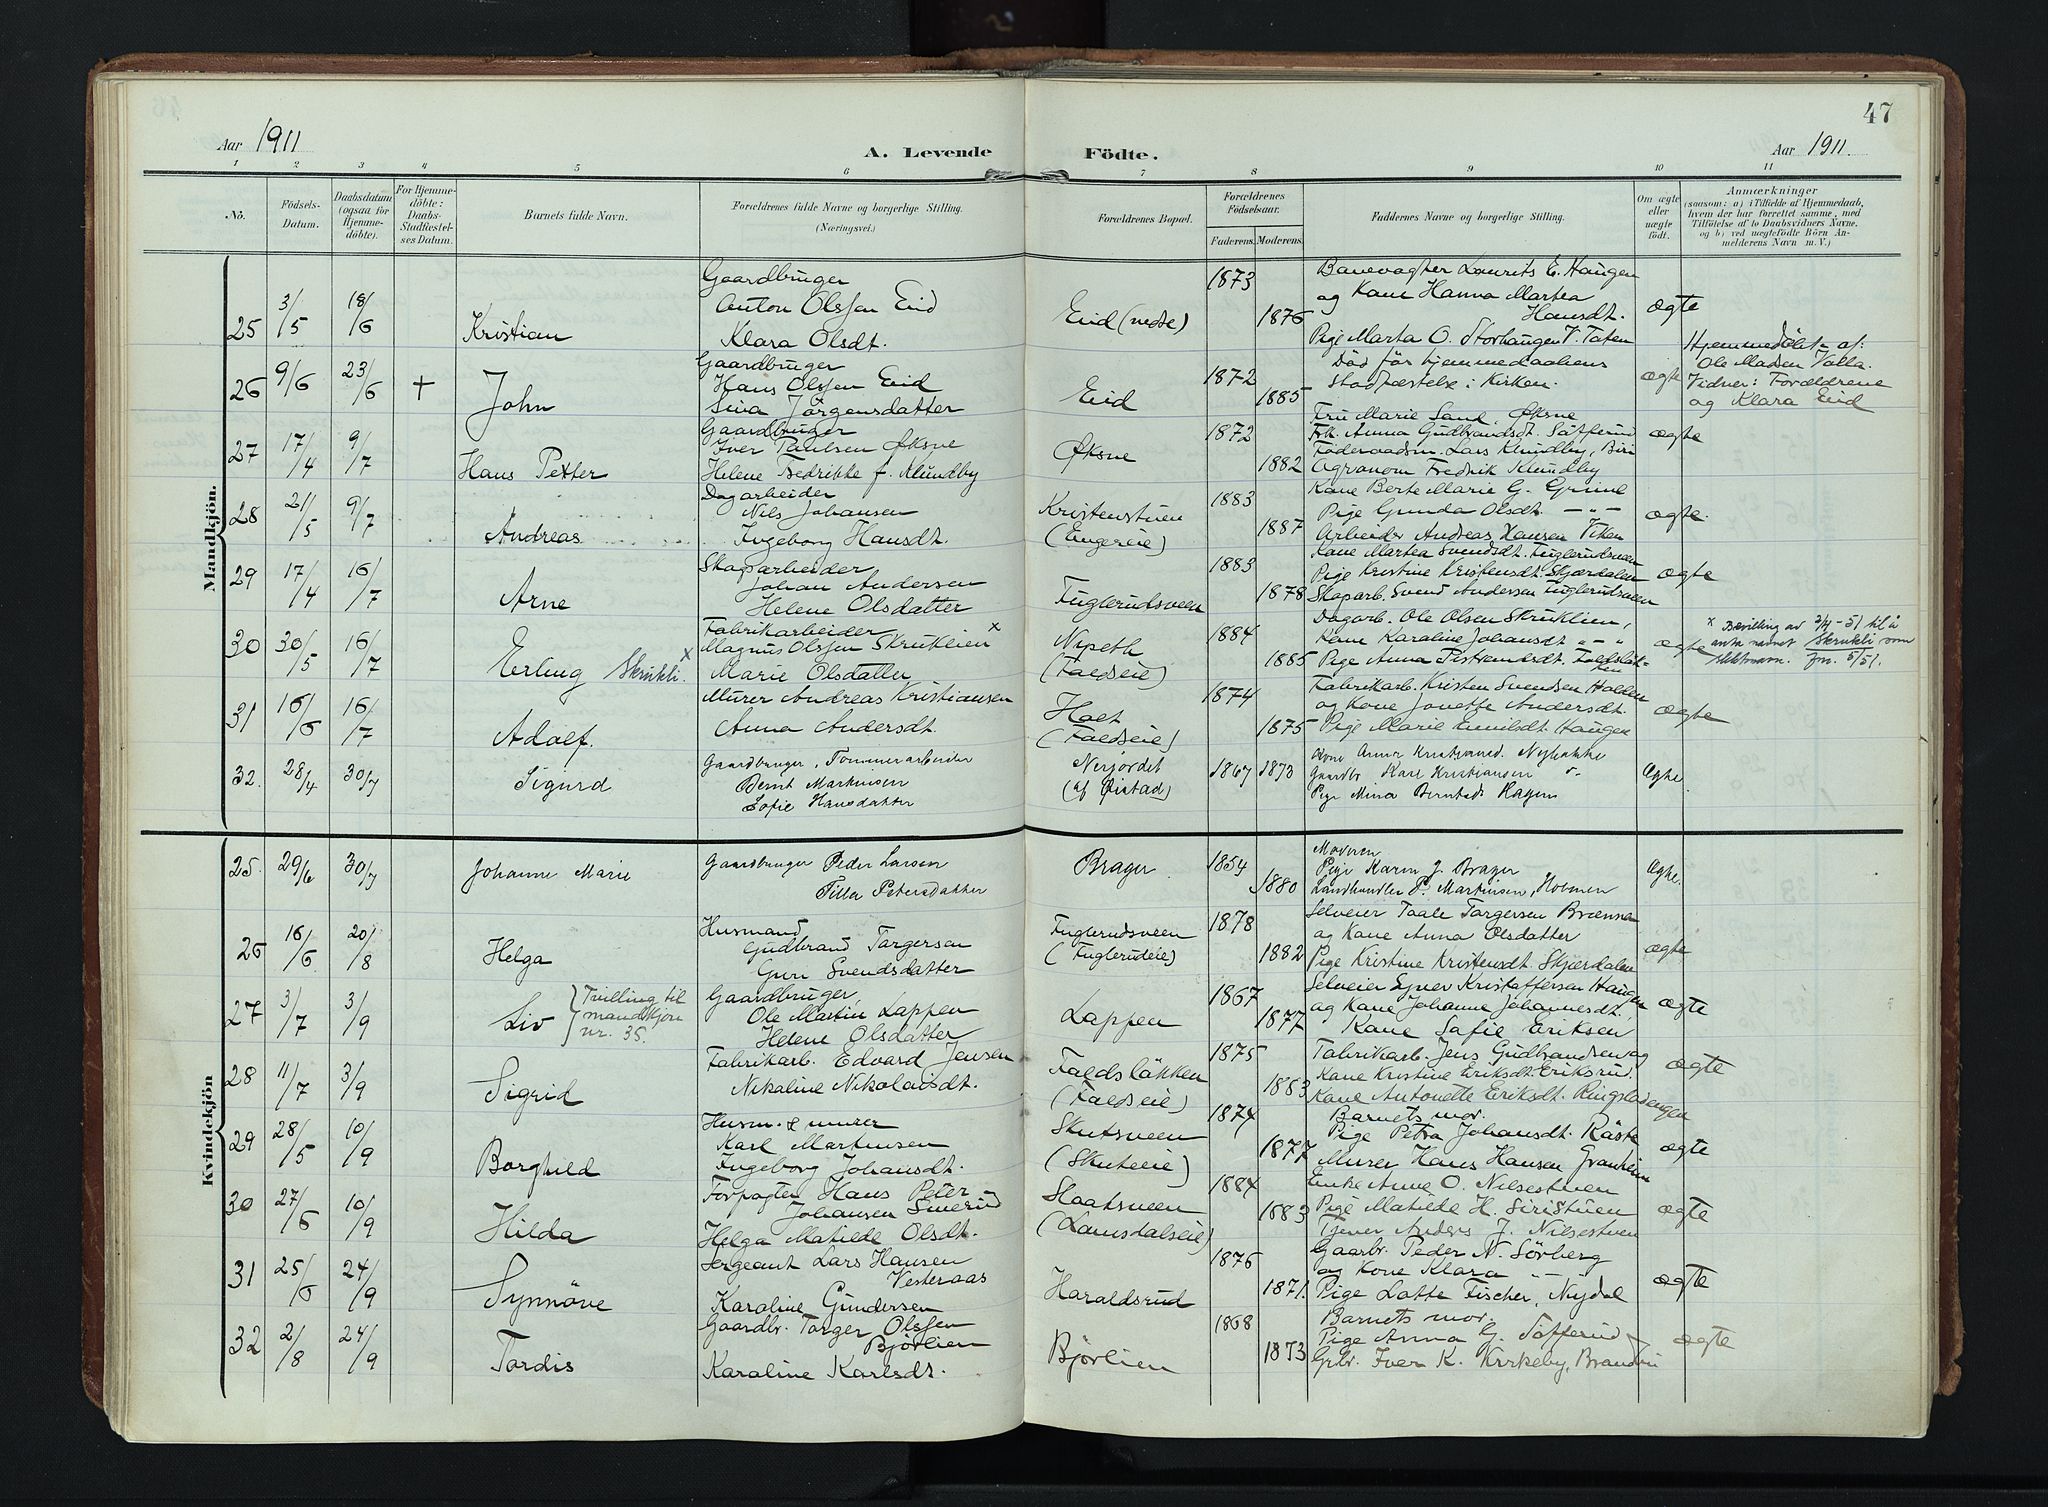 47
Aar 1911
A. Levende Födte.
Aar 1911.
1 2 3 4 5 6 7 8 9 10 11
No.
Födsels-Datum.
Daabsdatum (ogsaa for Hjemmedöbte).
For Hjemmedöbte: Daabs-Stadfæstelses Datum.
Barnets fulde Navn.
Forældrenes fulde Navne og borgerlige Stilling.
(Næringsvei.)
Forældrenes Bopæl.
Forældrenes Födselsaar.
Faderens. Moderens.
Faddernes Navne og borgerlige Stilling.
Om ægte eller uægte födt.
Anmærkninger
(saasom: a) i Tilfælde af Hjemmedaab,
hvem der har forrettet samme, med
Tilföielse af to Daabsvidners Navne.
og b) ved uægtefödte Börn Anmelderens Navn m. V.)
Mandkjön.
25 3/5 18/6 Kristian
Gaardbruger
Anton Olssen Eid
Klara Olsdt.
Eid (nedre) 1873 1876
Banevogter Laurits E. Haugen
og Kone Hanna Martea
Hansdt.
Pige Marta O. Storhaugen V. Toten
ægte
26 9/6 23/6 + John
Gaardbruger
Hans Olssen Eid
Sina Jörgensdatter
Eid 1872 1885
Död för hjemmedaabens
stadfæstelse i Kirken.
ægte
Hjemmedöbt af:
Ole Madsen Valla.
Vidner: Forældrene
og Klara Eid
27 17/4 9/7 Hans Petter
Gaardbruger
Iver Paulsen Øksne
Helene Fredrikke f. Klundby
Øksne 1872 1882
Fru Marie Sand Øksne
Frk. Anna Gudbrandsdt. Säfferud
Föderaadsm. Lars Klundby, Biri
Agronom Fredrik Klundby
ægte
28 21/5 9/7 Andreas
Dagarbeider
Nils Johansen
Ingeborg Hansdt.
Kristenstuen
(Engereie) 1883 1887
Kone Berte Marie G.
Pige Gunda Olsdt. — " —
Arbeider Andreas Hansen Viken
ægte.
29 17/4 16/7 Arne
Skogarbeider
Johan Andersen
Helene Olsdatter
Fuglerudsveen 1883 1878
Kone Martea Svendsdt. Fuglerudsveen
Pige Kristine Kristensdt. Skjærdalen
Skogarb. Svend Andersen Fuglerudsveen
ægte
30 30/5 16/7 Erling Skrukli. x
Fabrikarbeider
Magnus Olssen Skruklien x
Marie Olsdatter
Nipeth
(Faldseie) 1884 1885
Dagarb. Ole Olsen Skruklien,
Kone Karoline Johansdt — " —
Pige Anna
ægte
x Bevilling av 3/4-51 til å
anta navnet Skrukli som
slektsnavn. Jnr. 5/51.
31 16/6 16/7 Adolf.
Murer Andreas Kristiansen
Anna Andersdt.
Holt
(Faldseie) 1874 1875
Fabrikarb. Kristen Svendsen Holten
og Kone Jonette Andersdt.
Pige Marie Emilsdt. Haugen
ægte
32. 28/4 30/7 Sigurd
Gaardbruger, Tömmerarbeider
Bernt Martinsen
Sofie Hansdatter
Nerjordet
(af Øistad) 1867 1873
Kone Anna Nybakke
Gaardbr Karl Kristiansen
Pige Mina Berntsd. Hagen
Ægte.
Kvindekjön
25. 29/6 30/7 Johanne Marie
Gaardbruger Peder Larsen
Tilla Petersdatter
Brager. 1854 1880
Moderen
Pige Karen J. Brager
Landhandler P. Martinsen, Hovmoen
Ægte.
26 16/6. 20/8 Helga
Husmand
Gudbrand Torgersen
Guri Svendsdatter
Fuglerudsveen
(Fuglerudeie) 1878 1882
Selveier Taale Torgersen Brænna
og Kone Anna Olsdatter
Pige Kristine Kristensdt. Skjærdalen
ægte
27 3/7 3/9 Liv
Tvilling til
mandkjön
nr. 35.
Gaardbruger,
Ole Martin Lappen
Helene Olsdatter
Lappen 1867 1877
Selveier Syver Kristoffersen Haugen
og Kone Johanne Johannesdt.,
Kone Sofie Eriksen
ægte
28 11/7 3/9 Sigrid
Fabrikarb. Edvard Jensen
Nikoline Nikolaisdt.
Faldslökken
(Faldseie) 1875 1883
Fabrikarb. Jens Gudbrandsen og
Kone Kristine Eriksdt. Eriksrud.
Kone Antonette Eriksdt. Ringsladengen
ægte
29 28/5 10/9 Borghild
Husm. & murer
Karl Martinsen
Ingeborg Johansdt.
Skutsveen
(Skuteeie) 1874 1877
Barnets mor.
Pige Petra Johansdt. Röste
Murer Hans Hansen Granheim
ægte
30 27/6 10/9 Hilda
Forpagter Hans Peter
Johansen Smerud
Helga Matilde Olsdt.
Slaatsveen
(Lamsdalseie) 1884 1883
Enke Anne O. Nilsestuen
Pige Matilde H. Siristuen
Tjener Anders J. Nilsestuen
ægte
31 25/6 24/9 Synnöve
Sergeant Lars Hansen
Vesteraas
Karoline Gundersen
Haraldsrud 1876 1871.
Gaarbr. Peder N. Sörberg
og Kone Klara — " —
Pige Lotte Fischer, Nydal
ægte
32 2/8 24/9 Tordis
Gaardbr. Torger Olssen
Bjørlien
Karoline Karlsdt.
Bjørlien 1868 1873
Barnets mor,
Pige Anna G. Säfferud
Grbr. Iver K. Kirkeby,
ægte